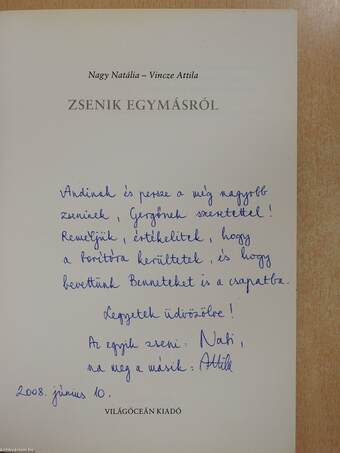 Nagy Natália – Vincze Attila
ZSENIK EGYMÁSRÓL
Andinak és persze a még nagyobb
zseninek, Gergőnek szeretettel!
Reméljük, értékelitek, hogy
a borítóra kerültetek, és hogy
bevettünk Benneteket is a csapatba.
Legyetek üdvözölve!
Az egyik zseni: Nati,
na meg a másik: Attila
2008. június 10.
VILÁGÓCEÁN KIADÓ